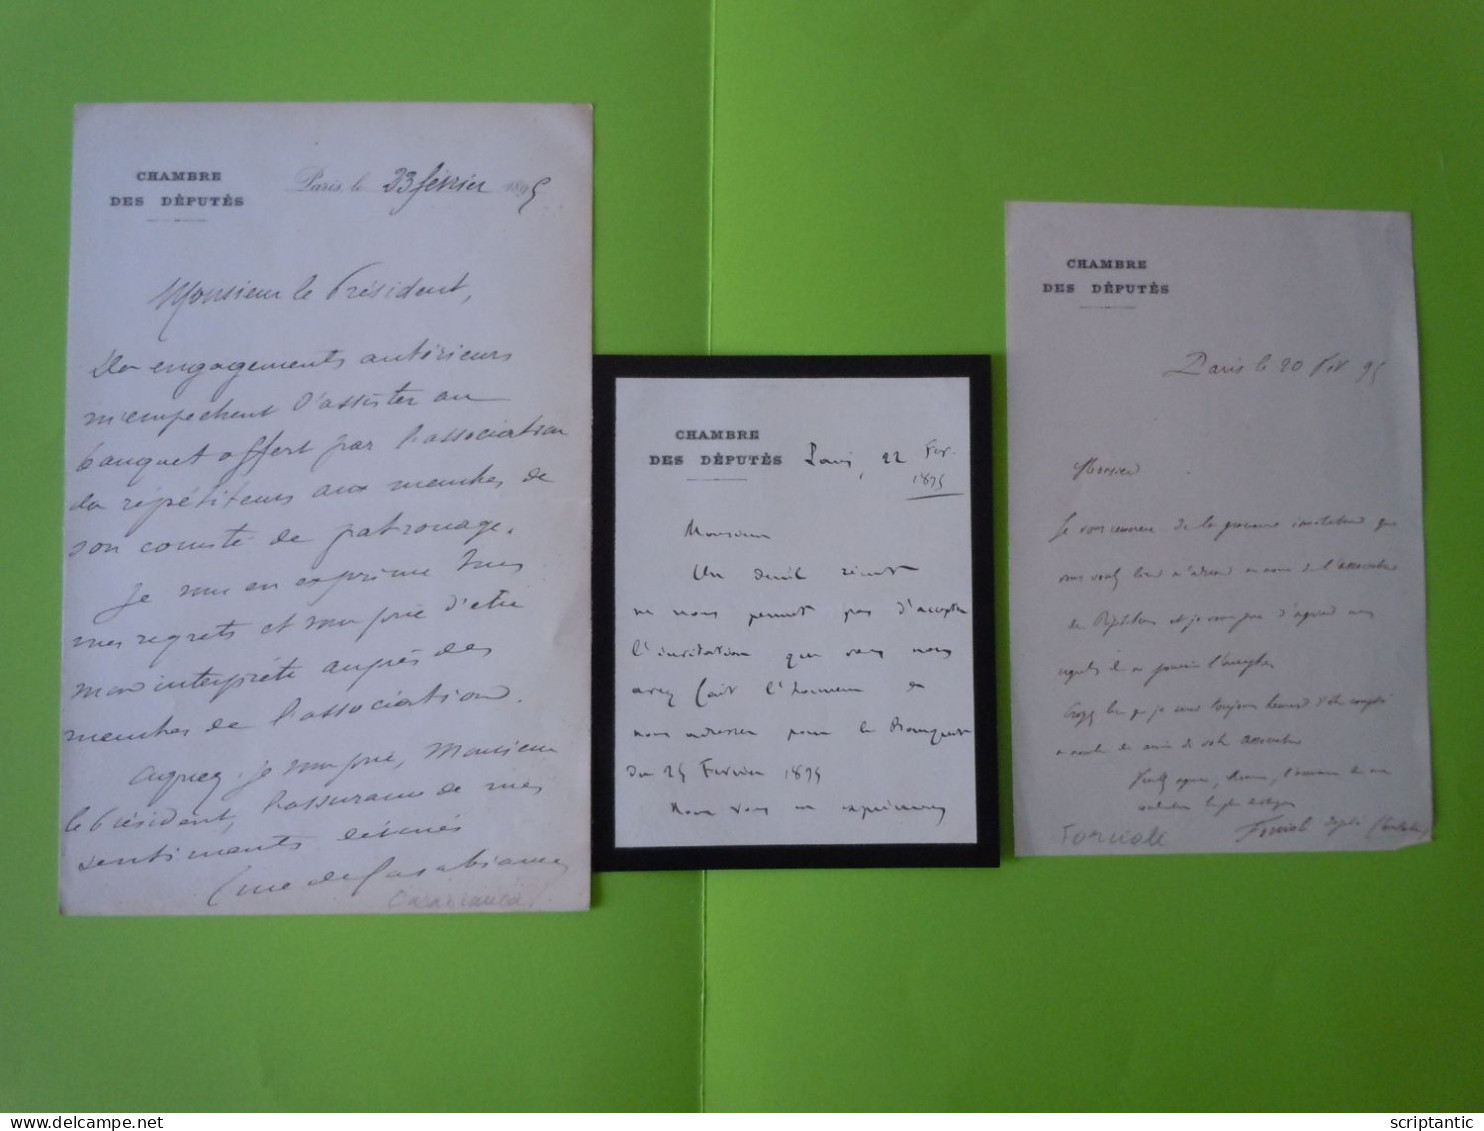 CHAMBRE
DES DÉPUTÉS
Paris, le 23 février 1895
Monsieur le Président,
Des engagements antérieurs
m'empêchent d'assister au
banquet offert par l'association
des répétiteurs aux membres de
son comité de patronage.
Je vous en exprime tous
mes regrets et vous prie d'être
mon interprète auprès des
membres de l'association.
Agréez, je vous prie, Monsieur
le Président, l'assurance de mes
sentiments dévoués
de Casabianca
Casabianca
CHAMBRE
DES DÉPUTÉS
Paris, 22 Fev.
1895
Monsieur
Un deuil récent
ne nous permet pas d'accepter
l'invitation que vous nous
avez fait l'honneur de
nous adresser pour le Banquet
du 25 Février 1895
Nous vous en exprimons
CHAMBRE
DES DÉPUTÉS
Paris le 20 Fev 95
Monsieur
Je vous remercie de la gracieuse invitation que
vous voulez bien m'adresser au nom de l'association
des Répétiteurs et je vous prie d'agréer mes
regrets de ne pouvoir l'accepter
Croyez bien que je serai toujours heureux d'être compté
au nombre des amis de votre association
Veuillez agréer, Monsieur, l'assurance de mes
Forniole
député
scriptantic
www.delcampe.net